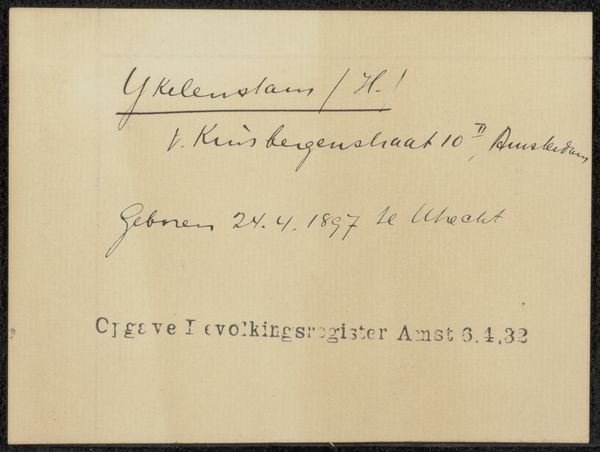 IJkelenstam (H.)
v. Kinsbergenstraat 10 II, Amsterdam
Geboren 24.4.1897 te Utrecht
Opgave Bevolkingsregister Amst 6.4.32